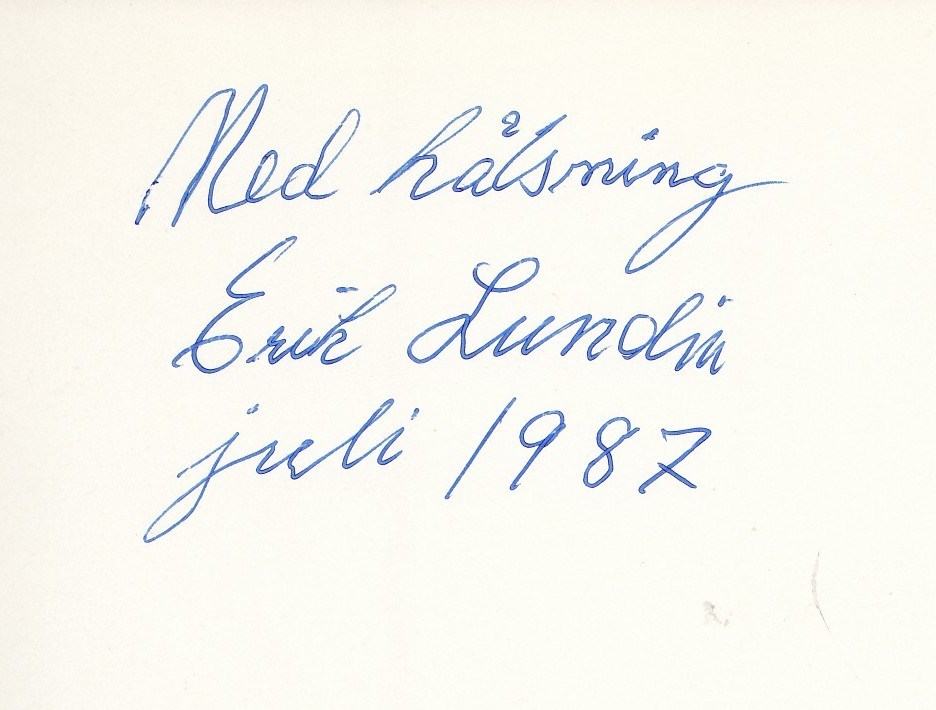 Med hälsning
Erik Lundin
juli 1987